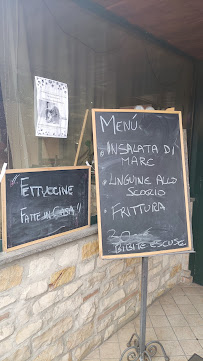 "FETTUCINE
FATTE IN CASA"
MENÚ
INSALATA DI
MARE
LINGUINE ALLO
SCOGLIO
FRITTURA
BIBITE ESCLUSE